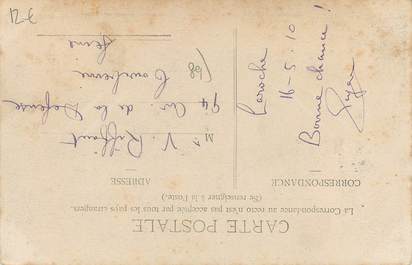 CARTE POSTALE
La Correspondance au recto n'est pas acceptée par tous les pays étrangers.
(Se renseigner à la Poste.)
CORRESPONDANCE
ADRESSE
Laroche
16-5-10
Bonne chance !
Mr V. Riffaut
94 Av. de la Défense
Courbevoie
Seine